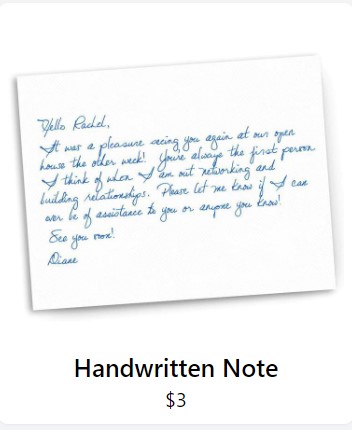 Hello Rachel,
It was a pleasure seeing you again at our open
house the other week! You're always the first person
I think of when I am out networking and
building relationships. Please let me know if I can
ever be of assistance to you or anyone you know!
See you soon!
Diane
Handwritten Note
$3